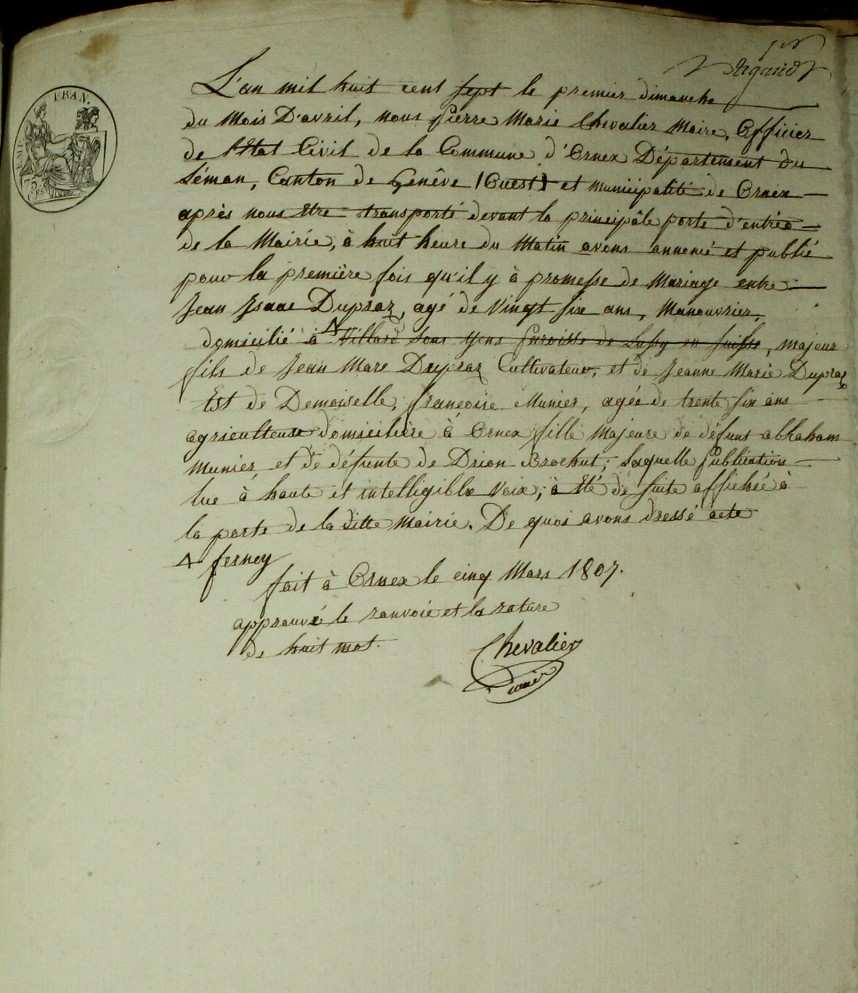 1er
Rigaud
FRAN.
L'an mil huit cent sept le premier dimanche
du Mois D'avril, nous pierre Marie Chevalier Maire, Officier
de l'Etat Civil de la Commune d'Ornex Département du
Léman, Canton de Genêve (Ouest) et municipalité de Ornex
après nous Etre transporté devant la principâle porte d'entrée
de la Mairie, à huit heure du Matin avons annoncé et publié
pour la première fois qu'il y à promesse de Mariage entre
Jean Isaac Dupraz, agé de Vingt six ans, Manouvrier,
domicilié à Δ Villard sous yens Paroisse de Lussy en suisse, majeur
fils de Jean Marc Dupraz Cultivateur, et de Jeanne Marie Dupraz
Est de Demoiselle, francoise Munier, agée de trente six ans
agriculteuse domiciliée à Ornex fille Majeure de défunt abraham
Munier et de défunte de Brochut, Laquelle Publication
lue à haute et intelligible Voix, à Eté de suite affichée à
la porte de la ditte Mairie. De quoi avons dressé acte
Δ ferney
fait à Ornex le cinq Mars 1807.
approuvé le ranvoie et la rature
de huit mot.
Chevalier
maire